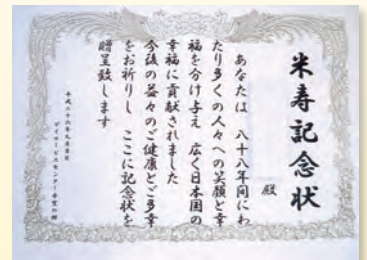 米寿記念状
殿
あなたは 八十八年間にわ
たり多くの人々への笑顔と幸
福を分け与え 広く日本国の
幸福に貢献されました
今後の益々のご健康とご多幸
をお祈りし ここに記念状を
贈呈致します
平成二十六年九月吉日
デイサービスセンター